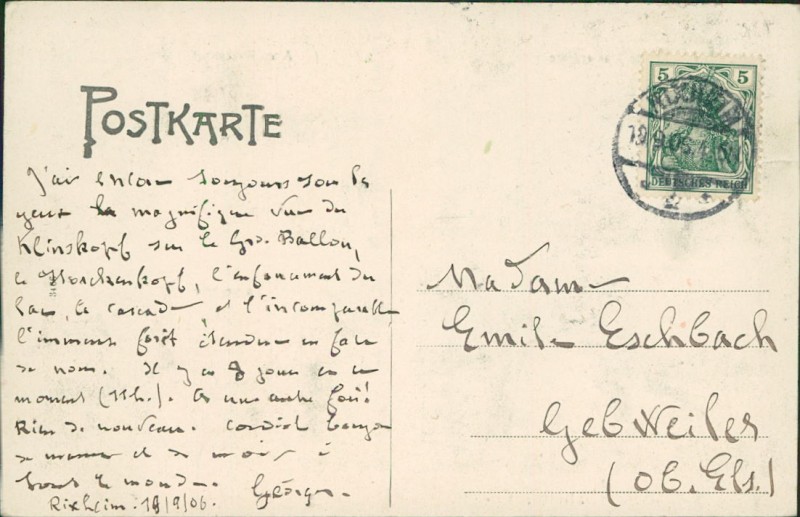 POSTKARTE
5 5
DEUTSCHES REICH
J'ai encore toujours sous les
yeux la magnifique vue du
Klinskopf sur le Gd. Ballon,
le Storckenkopf, l'enfoncement du
lac, la cascade, et l'incomparable
l'immense forêt étendue en face
de nous. Il y a 8 jours en ce
moment (11h.). A une autre fois!
Rien de nouveau. Cordial bonjour
de maman et de moi à
tout le monde. Georges.
Rixheim. 18/9/06.
Madame
Emile Eschbach
Gebweiler
(Ob. Els.)